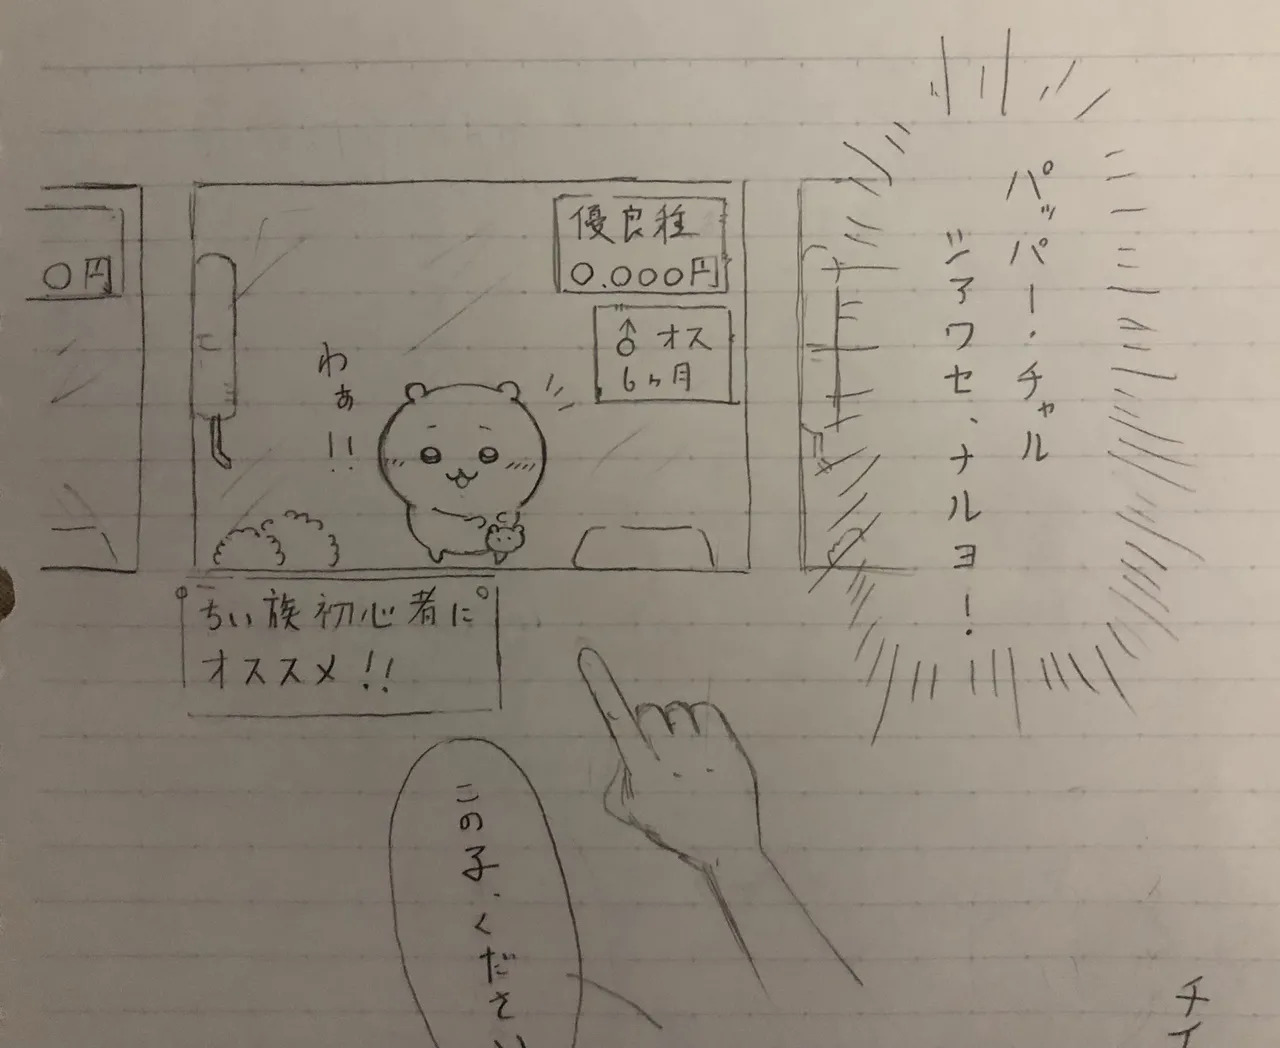 パッパー・チャル
シアワセ、ナルヨ!
優良種
0.000円
♂ オス
6ヶ月
0円
わぁ!!
ちい族初心者に
オススメ!!
この子、ください
チイ